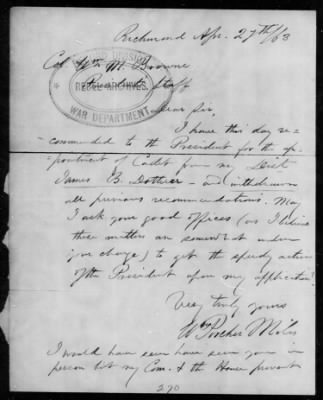 Richmond Apr. 27th/63
Col Wm M. Browne
President's Staff
RECORD DIVISION
REBEL ARCHIVES
WAR DEPARTMENT
Dear Sir,
I have this day re-
commended to the President for the ap-
pointment of Cadet from my Dist
James B. - and withdrawn
all previous recommendations. May
I ask your good offices (as I believe
these matters are somewhat under
your charge) to get the speedy action
of the President upon my application?
Very truly yours
Wm Porcher Miles
I would have seen you in
person but my Com. & the House prevent
270